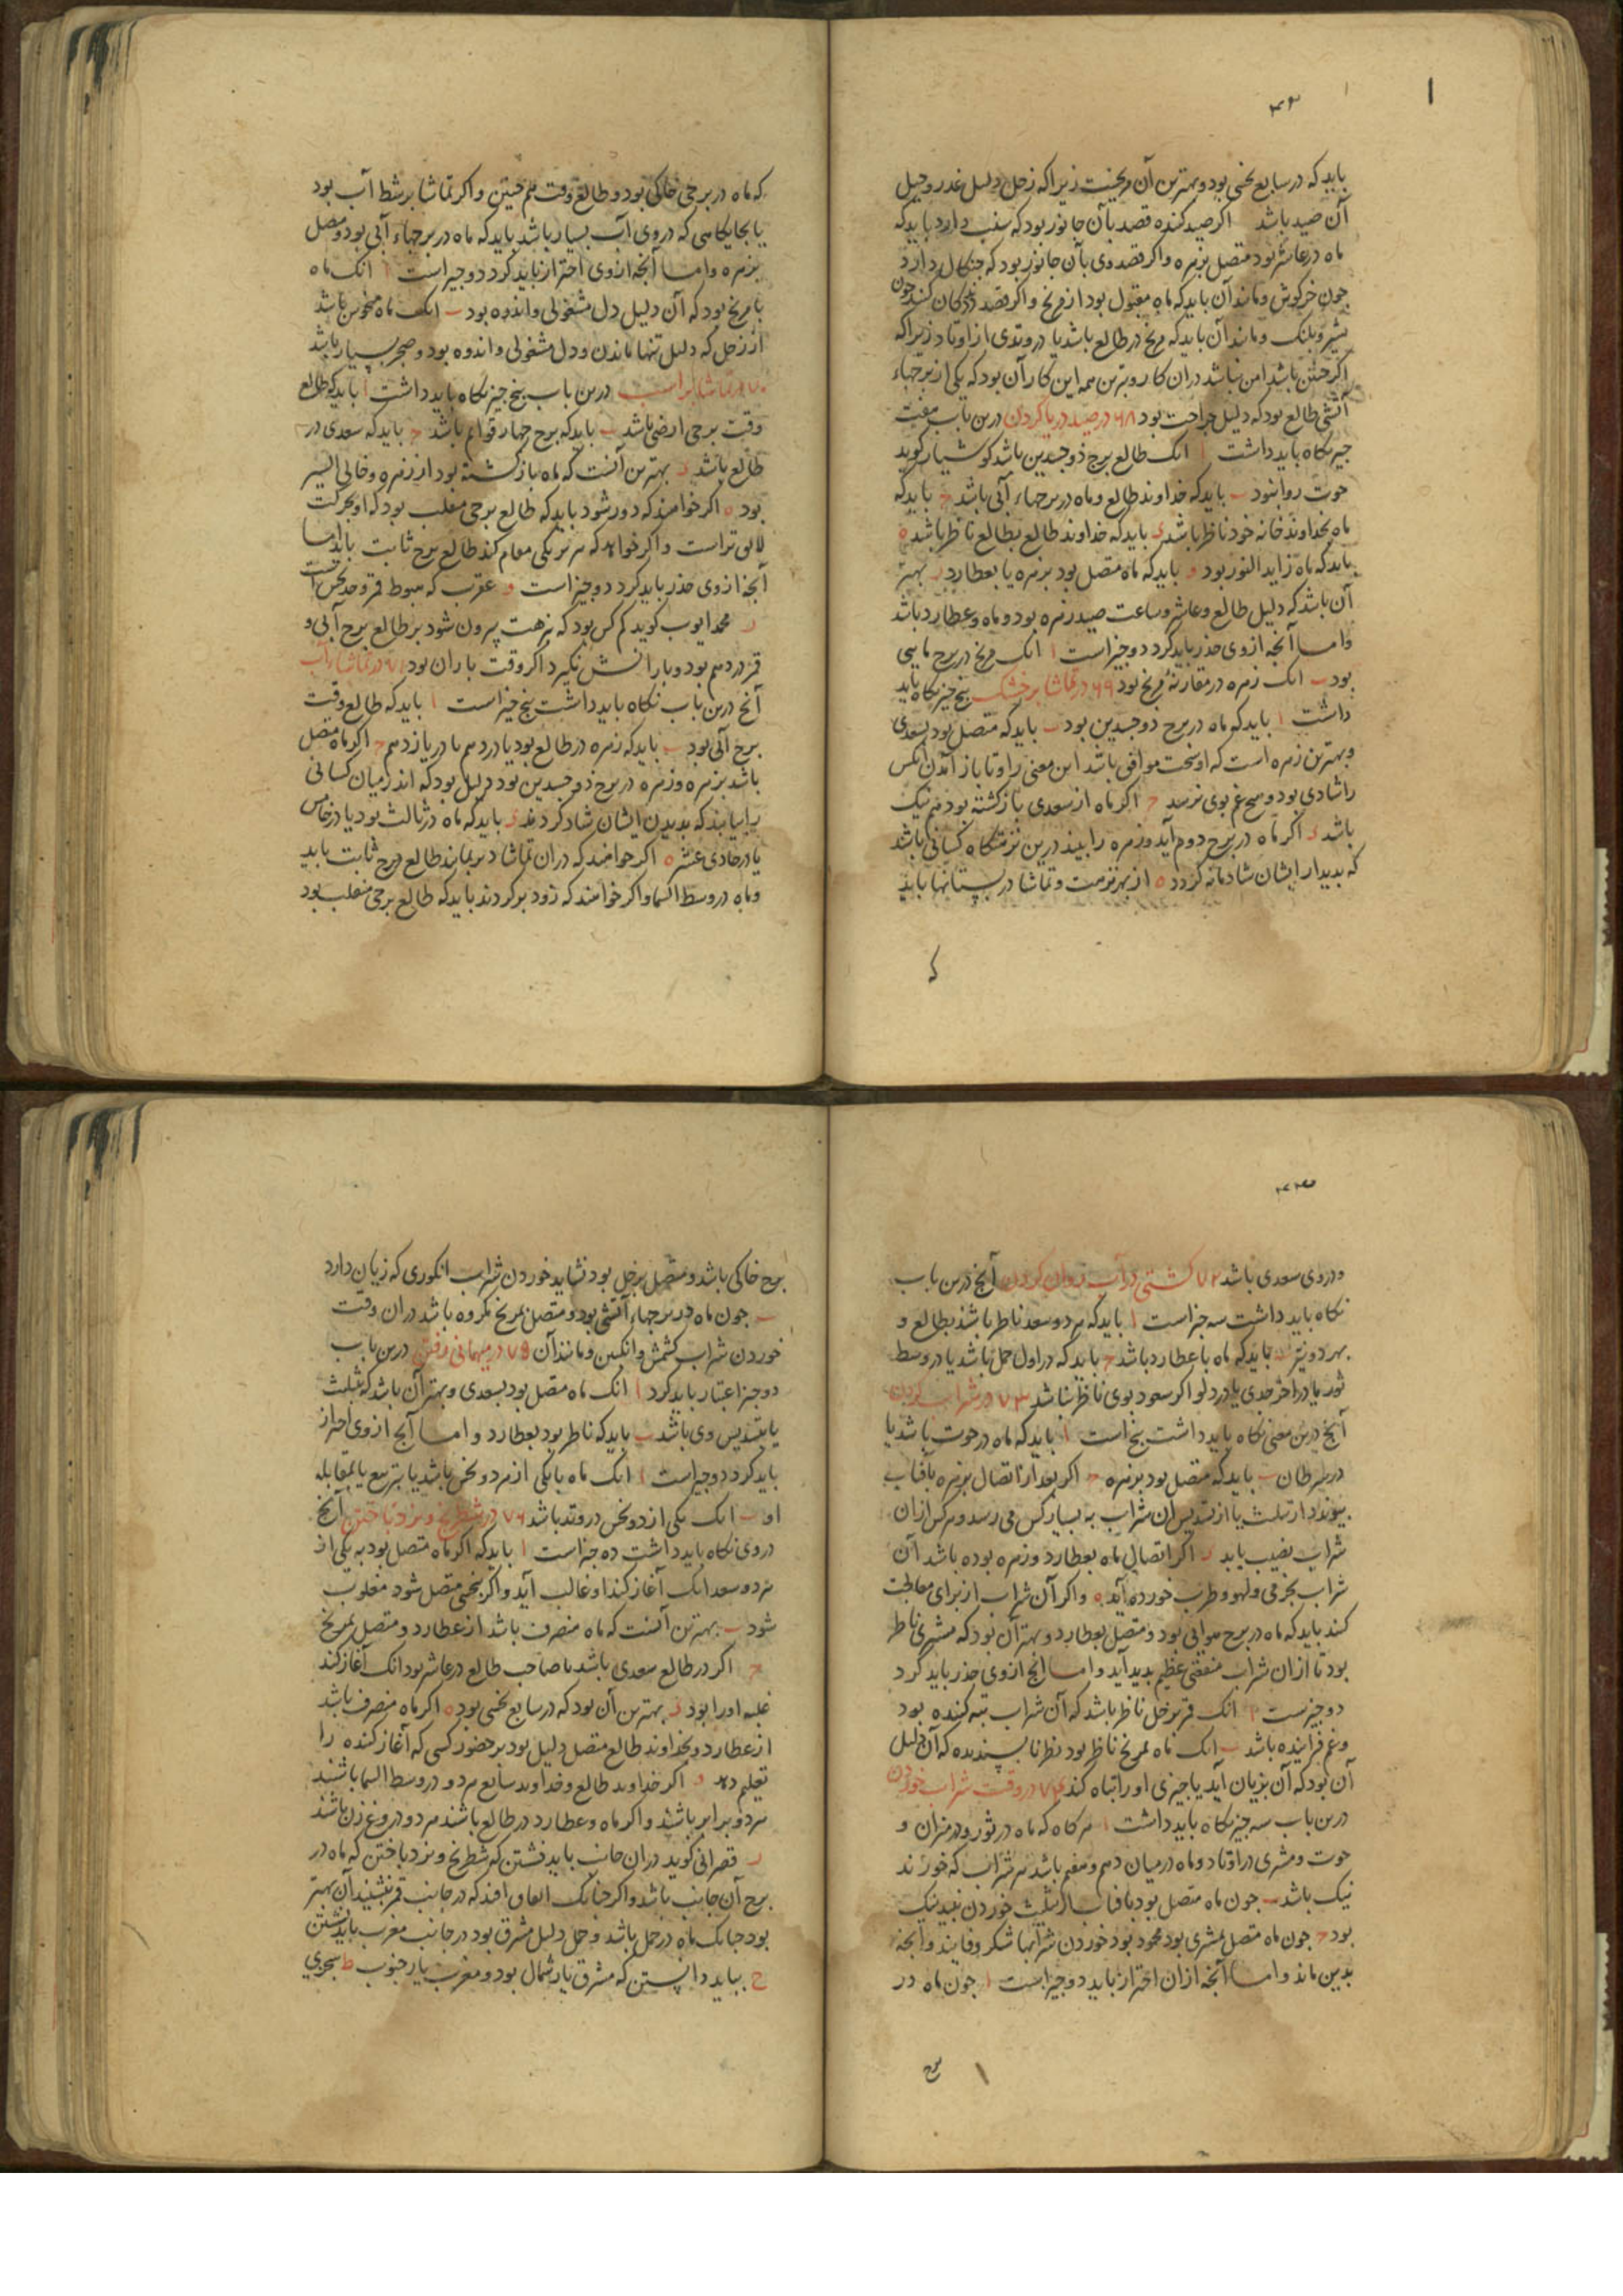 ۴۲
باید که در سابع نحسی بود و بهترین آن مریخست زیرا که زحل دلیل غدر و حیل
آن صید باشد اکر صید کننده قصد بآن جانور بود که سنب دارد باید که
ماه در عاشر بود متصل بزهره و اکر قصد وی بآن جانور بود که جنکال دارد
جون خرکوش و مانند آن باید که ماه مقبول بود از مریخ و اکر قصد ددکان کنند جون
شیر و پلنک و مانند آن باید که مریخ در طالع باشد یا در وتدی از اوتاد زیرا که
اکر جنین باشد امن باشد در ان کار و بترین همه این کار آن بود که یکی از برجهاء
آتشی طالع بود که دلیل جراحت بود ۶۸ در صید دریا کردن درین باب هفت
جیز نکاه باید داشت ا انک طالع برج ذوجسدین باشد کوشیار کوید
حوت روا بود ب باید که خداوند طالع و ماه در برجهاء آبی باشد ج باید که
ماه بخداوند خانه خود ناظر باشد د باید که خداوند طالع بطالع ناظر باشد ه
باید که ماه زاید النور بود و باید که ماه متصل بود بزهره یا بعطارد ز بهتر
آن باشد که دلیل طالع و عاشر و ساعت صید زهره بود و ماه و عطارد باشد
و اما آنجه از وی حذر باید کرد دو جیز است ا انک مریخ در برج ماهی
بود ب انک زهره در مقارنهٔ مریخ بود ۶۹ در تماشا بر خشک پنج جیز نکاه باید
داشت ا باید که ماه در برج دوجسدین بود ب باید که متصل بود بسعدی
و بهترین زهره است که او سخت موافق باشد این معنی را و تا باز آمدن انکس
را شادی بود و هیچ غم بوی نرسد ج اکر ماه از سعدی بازکشته بود هم نیک
باشد د اکر ماه در برج دوم آید و زهره را بیند درین نزهتکاه کسانی باشد
که بدیدار ایشان شادمانه کردد ه از بهر نزهت و تماشا در بستانها باید
که
که ماه در برجی خاکی بود و طالع وقت هم جنین و اکر تماشا بر شط آب بود
یا بجایکاهی که در وی آب بسیار باشد باید که ماه در برجهاء آبی بود و متصل
بزهره و اما آنجه از وی احتراز باید کرد دو جیز است ا انک ماه
با مریخ بود که آن دلیل دل مشغولی و اندوه بود ب انک ماه منحوس باشد
از زحل که دلیل تنها ماندن و دل مشغولی و اندوه بود و ضجر بسیار باشد
۷۰ در تماشا بر اسب درین باب پنج جیز نکاه باید داشت ا باید که طالع
وقت برجی ارضی باشد ب باید که برج جهار قوایم باشد ج باید که سعدی در
طالع باشد د بهترین آنست که ماه بازکشته بود از زهره و خالی السیر
بود ه اکر خواهند که دور شود باید که طالع برجی منقلب بود که او بحرکت
لایق تر است و اکر خواهد که هر بر یکی مقام کند طالع برج ثابت باید اما
آنجه از وی حذر باید کرد دو جیز است و عقرب که هبوط قمر و حد نحس است
ز محمد ایوب کوید کم کس بود که بنزهت بیرون شود بر طالع برج آبی و
قمر در دهم بود و بارانش نکیرد اکر وقت باران بود ۷۱ در تماشا بآب
آنج درین باب نکاه باید داشت پنج جیز است ا باید که طالع وقت
برج آبی بود ب باید که زهره در طالع بود یا در دهم یا در یازدهم ج اکر ماه متصل
باشد بزهره و زهره در برج ذوجسدین بود دلیل بود که اندر میان کسانی
را بیابند که بدیدن ایشان شاد کردند د باید که ماه در ثالث بود یا در خامس
یا در حادی عشر ه اکر خواهند که در ان تماشا دیر بمانند طالع برج ثابت باید
و ماه در وسط السما و اکر خواهند که زود برکردند باید که طالع برجی منقلب بود
۴۳
و در وی سعدی باشد ۷۲ کشتی در آب روان کردن آنج درین باب
نکاه باید داشت سه جیز است ا باید که هر دو سعد ناظر باشند بطالع و
بهر دو نیر ب باید که ماه با عطارد باشد ج باید که در اول حمل باشد یا در وسط
ثور یا در آخر جدی یا در دلو اکر سعود بوی ناظر باشد ۷۳ در شراب کردن
آنج درین معنی نکاه باید داشت پنج است ا باید که ماه در حوت باشد یا
در سرطان ب باید که متصل بود بزهره ج اکر بعد از اتصال بزهره بآفتاب
پیوندد از تثلیث یا از تسدیس ان شراب به بسیار کس می رسد و هر کس از ان
شراب نصیب یابد د اکر اتصال ماه بعطارد و زهره بوده باشد آن
شراب بخرمی و لهو و طرب خورده آید ه و اکر آن شراب از برای معالجت
کنند باید که ماه در برج هوائی بود و متصل بعطارد و بهتر آن بود که مشتری ناظر
بود تا از ان شراب منفعتی عظیم پدید آید و اما آنج از وی حذر باید کرد
دو جیزست ا انک قمر بزحل ناظر باشد که آن شراب تبه کننده بود
و غم فزاینده باشد ب انک ماه بمریخ ناظر بود نظر ناپسندیده که آن دلیل
آن بود که آن بزیان آید یا جیزی او را تباه کند ۷۴ در وقت شراب خوردن
درین باب سه جیز نکاه باید داشت ا هر کاه که ماه در ثور و در میزان و
حوت و مشتری در اوتاد و ماه در میان دهم و هفتم باشد هر شراب که خورند
نیک باشد ب جون ماه متصل بود بآفتاب از تثلیث خوردن نبیذ نیک
بود ج جون ماه متصل بمشتری بود محمود بود خوردن شرابها شکر و فانید و آنجه
بدین ماند و اما آنجه از ان احتراز باید دو جیز است ا جون ماه در
برج
برج خاکی باشد و متصل بزحل بود نشاید خوردن شراب انکوری که زیان دارد
ب جون ماه در برجهاء آتشی بود و متصل بمریخ مکروه باشد در ان وقت
خوردن شراب کشمش و انکبین و مانند آن ۷۵ در میهمانی رفتن درین باب
دو جیز اعتبار باید کرد ا انک ماه متصل بود بسعدی و بهتر آن باشد که بتثلیث
یا بتسدیس وی باشد ب باید که ناظر بود بعطارد و اما آنج از وی احتراز
باید کرد دو جیز است ا انک ماه با یکی از هر دو نحس باشد یا بتربیع یا بمقابله
او ب انک یکی از دو نحس در وتد باشد ۷۶ در شطرنج و نرد باختن آنج
در وی نکاه باید داشت ده جیز است ا باید که اکر ماه متصل بود به یکی از
هر دو سعد انک آغاز کند او غالب آید و اکر بنحسی متصل شود مغلوب
شود ب بهترین آنست که ماه منصرف باشد از عطارد و متصل بمریخ
ج اکر در طالع سعدی باشد یا صاحب طالع در عاشر بود انک آغاز کند
غلبه او را بود د بهترین آن بود که در سابع نحسی بود ه اکر ماه منصرف باشد
از عطارد و بخداوند طالع متصل دلیل بود بر حضور کسی که آغاز کننده را
تعلیم دهد و اکر خداوند طالع و خداوند سابع هر دو در وسط السما باشند
هر دو برابر باشند و اکر ماه و عطارد در طالع باشند هر دو دروغ زن باشند
ز قصرانی کوید در ان جانب باید نشستن که شطرنج و نرد باختن که ماه در
برج آن جانب باشد و اکر جنانک اتفاق افتد که در جانب قمر نشیند آن بهتر
بود جنانک ماه در حمل باشد و حمل دلیل مشرق بود در جانب مغرب باید نشستن
ح بباید دانستن که مشرق یار شمال بود و مغرب یار جنوب ط سجزی